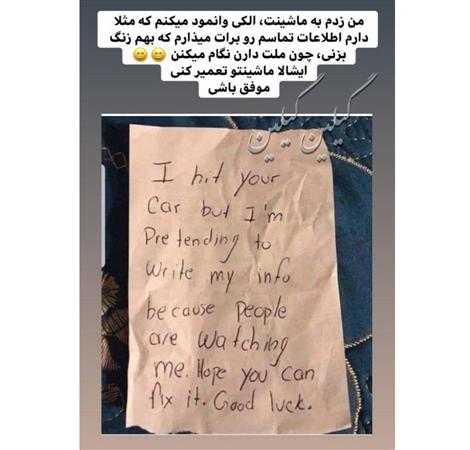 من زدم به ماشینت، الکی وانمود میکنم که مثلا
دارم اطلاعات تماسم رو برات میذارم که بهم زنگ
بزنی، چون ملت دارن نگام میکنن 😄😄
ایشالا ماشینتو تعمیر کنی
موفق باشی
گیلین گیلین
I hit your
Car but I'm
Pretending to
Write my info
because People
are Watching
me. Hope you can
fix it. Good luck.